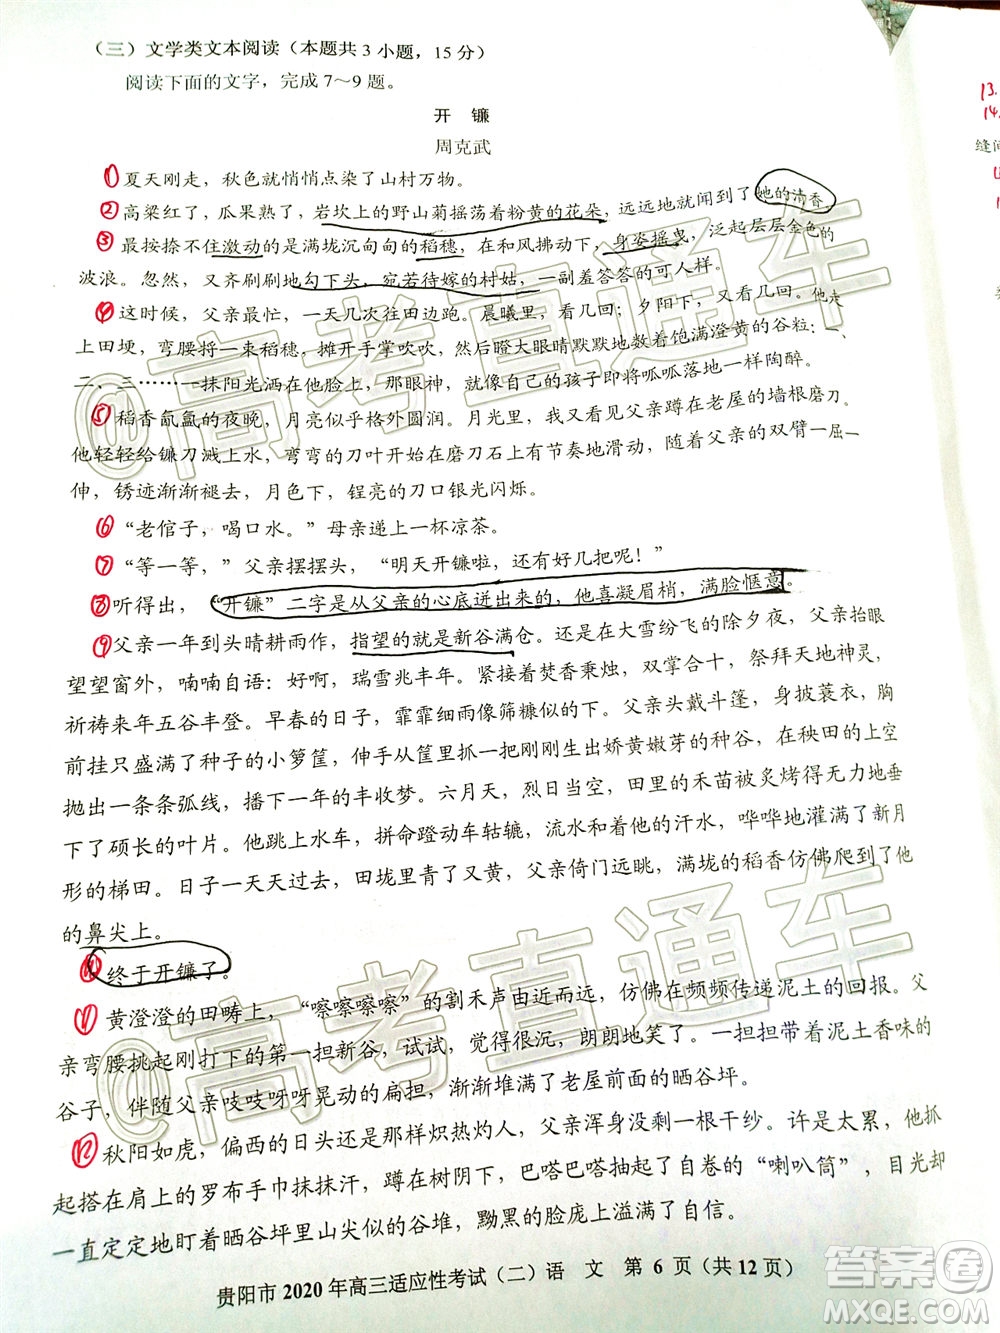 （三）文学类文本阅读（本题共3小题，15分）
阅读下面的文字，完成7～9题。
开 镰
周克武
① 夏天刚走，秋色就悄悄点染了山村万物。
② 高粱红了，瓜果熟了，岩坎上的野山菊摇荡着粉黄的花朵，远远地就闻到了她的清香。
③ 最按捺不住激动的是满垅沉甸甸的稻穗，在和风拂动下，身姿摇曳，泛起层层金色的
波浪。忽然，又齐刷刷地勾下头，宛若待嫁的村姑，一副羞答答的可人样。
④ 这时候，父亲最忙，一天几次往田边跑。晨曦里，看几回；夕阳下，又看几回。他走
上田埂，弯腰捋一束稻穗，摊开手掌吹吹，然后瞪大眼睛默默地数着饱满澄黄的谷粒：一、
二、三………一抹阳光洒在他脸上，那眼神，就像想自己的孩子即将呱呱坠地一样陶醉。
⑤ 稻香氤氲的夜晚，月亮似乎格外圆润。月光里，我又看见父亲蹲在老屋的墙根磨刀。
他轻轻给镰刀溅上水，弯弯的刀叶开始在磨刀石上有节奏地滑动，随着父亲的双臂一屈一
伸，锈迹渐渐褪去，月色下，锃亮的刀口银光闪烁。
⑥ “老倌子，喝口水。”母亲递上一杯凉茶。
⑦ “等一等，”父亲摆摆头，“明天开镰啦，还有好几把呢！”
⑧ 听得出，“开镰”二字是从父亲的心底迸出来的，他喜凝眉梢，满脸惬意。
⑨ 父亲一年到头晴耕雨作，指望的就是新谷满仓。还是在大雪纷飞的除夕夜，父亲
望望窗外，喃喃自语：好啊，瑞雪兆丰年。紧接着焚香秉烛，双掌合十，祭拜天地神灵，
祈祷来年五谷丰登。早春的日子，霏霏细雨像筛糠似的下。父亲头戴斗篷，身披蓑衣，胸
前挂只盛满了种子的小箩筐，伸手从筐里抓一把刚刚生出娇黄嫩芽的种谷，在秧田的上空
抛出一条条弧线，播下一年的丰收梦。六月天，烈日当空，田里的禾苗被炙烤得无力地垂
下了硕长的叶片。他跳上水车，拼命蹬动车轱辘，流水和着他的汗水，哗哗地灌满了新月
形的梯田。日子一天天过去，田垅里青了又黄，父亲倚门远眺，满垅的稻香仿佛爬到了他
的鼻尖上。
终于开镰了。
11 黄澄澄的田畴上，“嚓嚓嚓嚓”的割禾声由近而远，仿佛在频频传递泥土的回报。父
亲弯腰挑起刚打下的第一担新谷，试试，觉得很沉，朗朗地笑了。一担担带着泥土香味的
谷子，伴随父亲吱吱呀呀晃悠的扁担，渐渐堆满了老屋前面的晒谷坪。
12 秋阳如虎，偏西的日头还是那样炽热灼人，父亲浑身没剩一根干纱。许是太累，他抓
起搭在肩上的罗布手巾抹抹汗，蹲在树阴下，巴嗒巴嗒抽起了自卷的“喇叭筒”，目光却
一直定定地盯着晒谷坪里山尖似的谷堆，黝黑的脸庞上溢满了自信。
贵阳市2020年高三适应性考试（二）语 文 第6页（共12页）
13.
14.
缝间
@高考直通车
@高考直通车
答案圈
MXQE.COM